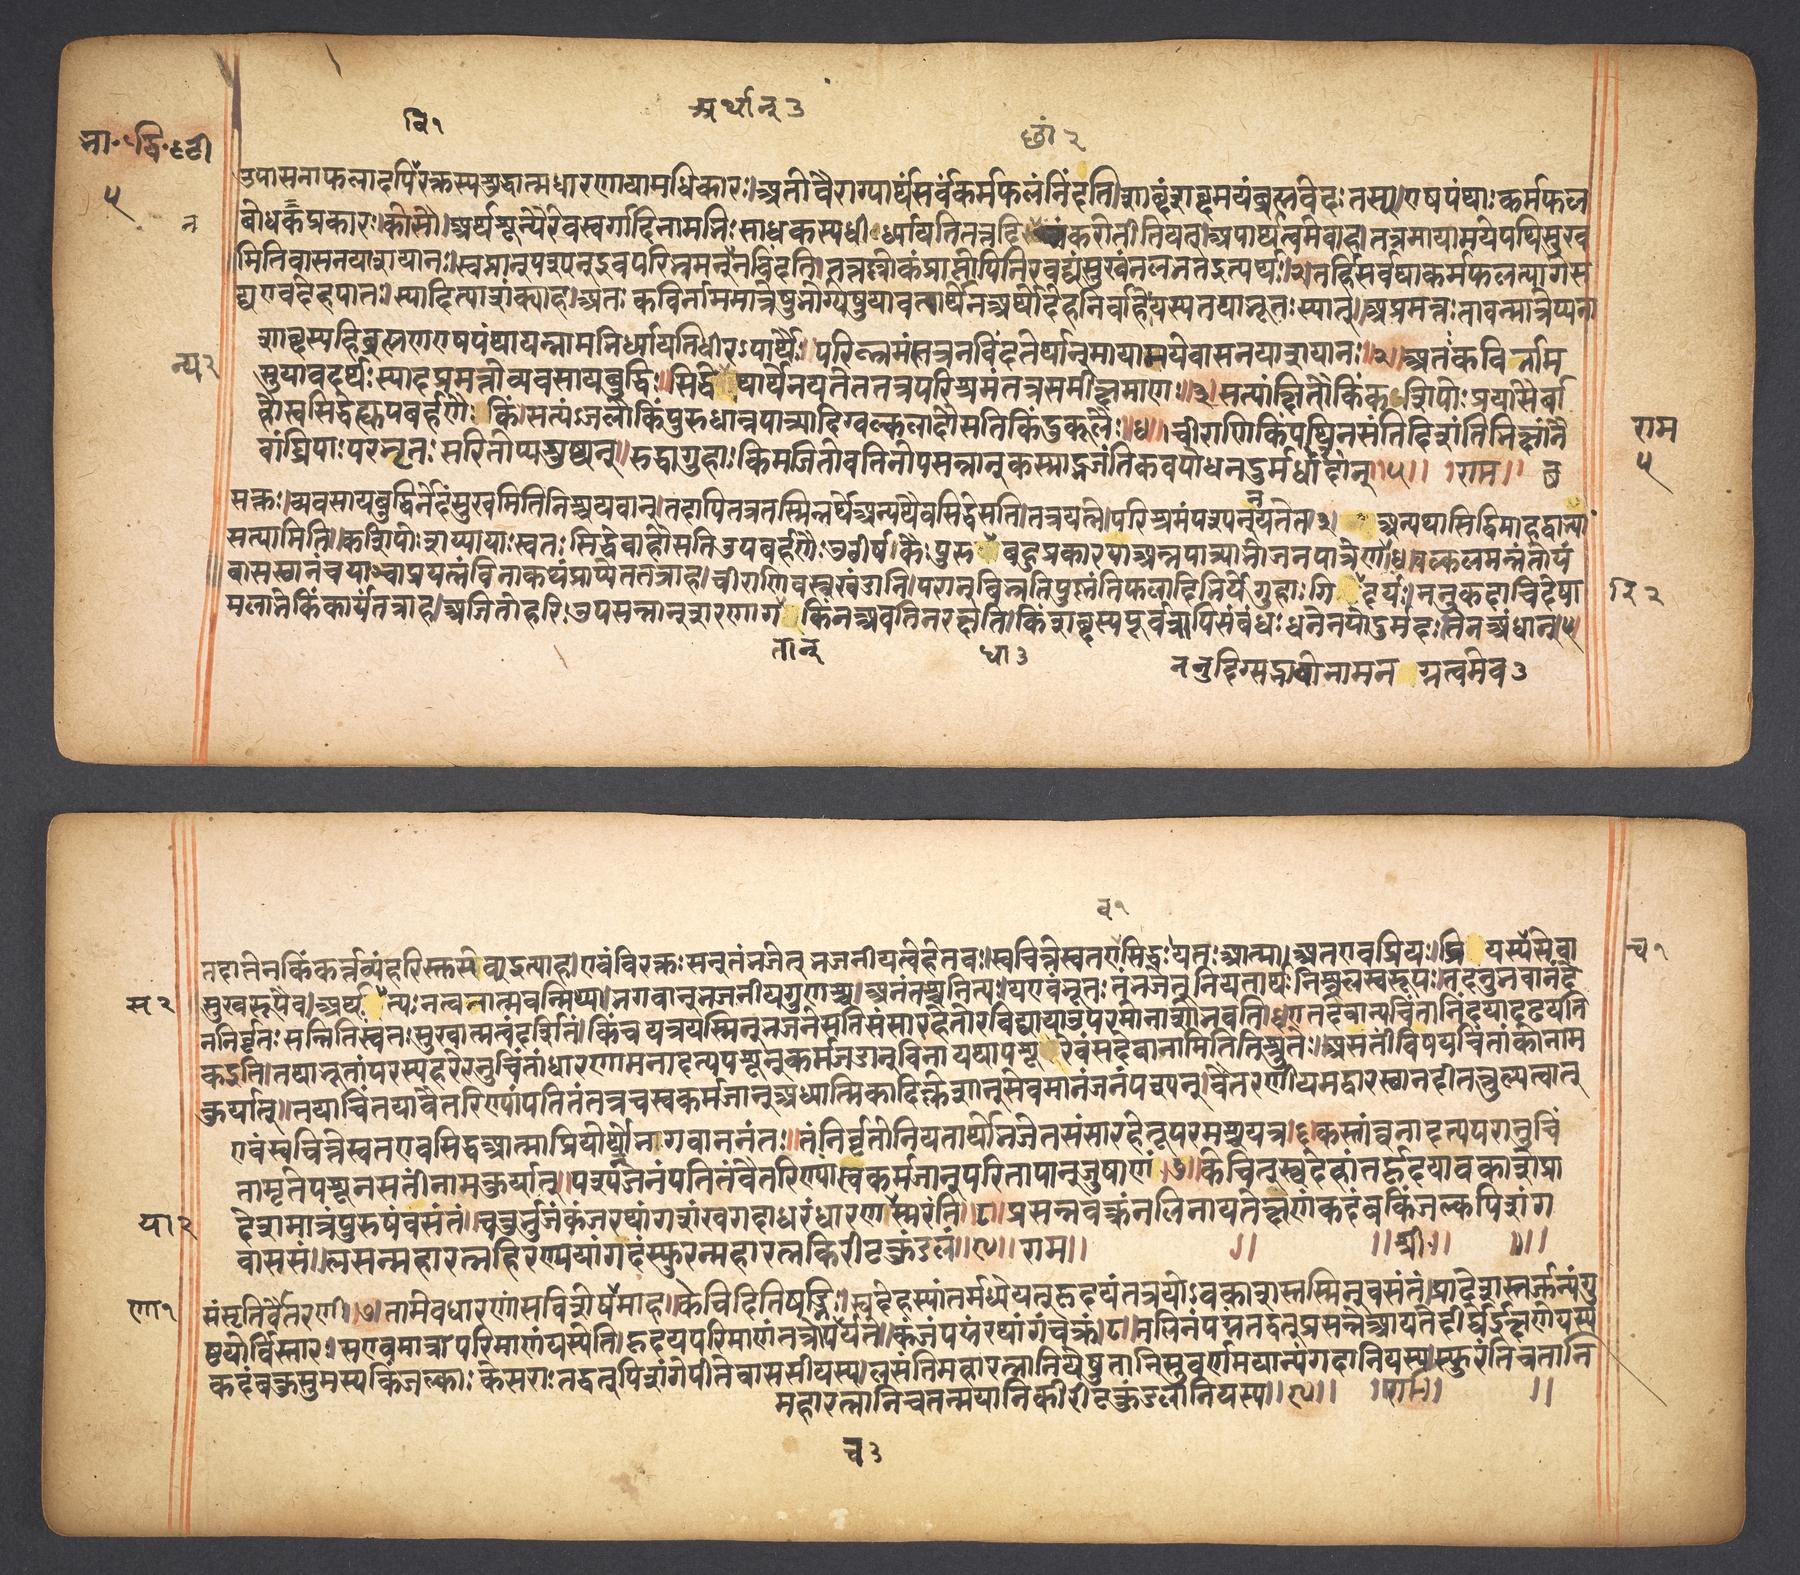 वि१ अर्थान् ३
छां २
भा. द्वि. टी
५
उपासनाफलादपि विरक्तस्य शुद्धात्मधारणायामधिकारः। अतो वैराग्यार्थं सर्वकर्मफलं निंदति। शाब्दं शब्दमयं ब्रह्म वेदः तस्य। एष पंथाः कर्मफल
बोधकप्रकारः। कोसौ। अर्थशून्यैरेव स्वर्गादिनामभिः साधकस्य धीः ध्यायति तत्तदि करोतीति यत्। अपार्थत्वमेवाह। तत्र मायामये पथि सुख
मिति वासनया शयानः। स्वप्नान् पश्यन्निव परिभ्रमन् न विंदति। तत्तल्लोकं प्राप्तोपि निरवद्यं सुखं न लभत इत्यर्थः। २। तर्हि सर्वथा कर्मफलत्यागे स
द्य एव देहपातः स्यादित्याशंक्याह। अतः कविर्नाममात्रेषु भोग्येषु यावतार्थेन अर्थो देहनिर्वाहो यस्य तथाभूतः स्यात्। अप्रमत्तः तावन्मात्रेप्यना
शाब्दस्य हि ब्रह्मण एष पंथा यन्नामभिर्ध्यायति धीरऽपार्थैः। परिभ्रमंस्तत्र न विंदतेर्थान् मायामये वासनया शयानः। २। अतः कविर्नाम
न्य २
सु यावदर्थः स्यादप्रमत्तो व्यवसायबुद्धिः। सिद्धे न्यथार्थे न यतेत तत्र परिश्रमं तत्र समीक्षमाणः। ३। सत्यां क्षितौ किं कशिपोः प्रयासैर्बा
हौ स्वसिद्धे ह्युपबर्हणैः किं। सत्यंऽजलौ किं पुरुधान्नपात्र्या दिग्वल्कलादौ सति किं दुकूलैः। ४। चीराणि किं पथि न संति दिशंति भिक्षां नै
वांघ्रिपाः परभृतः सरितोप्यशुष्यन्। रुद्धा गुहाः किमजितोवति नोपसन्नान् कस्माद्भजंति कवयो धनदुर्मदांधान्॥५॥ ॥राम॥
राम
५
सक्तः। व्यवसायबुद्धिर्नेदं सुखमिति निश्चयवान्। तदापि तत्र तस्मिन्नर्थे अन्यथैव सिद्धे सति। तत्र यत्ने। परिश्रमं पश्यन् न यतेत। ३। अन्यथासिद्धिमाह द्वाभ्यां
सत्यामिति। कशिपोः शय्यायाः स्वतः सिद्धे बाहौ सति उपबर्हणैः उच्छीर्षकैः पुरुधा बहुप्रकारया अन्नपात्र्या भोजनपात्रेण। ४। वल्कलमन्नं तोयं
वासस्थानं च याञ्चाप्रयत्नं विना कथं प्राप्येत तत्राह। चीराणि वस्त्रखंडानि। परान् बिभ्रति पुष्णंति फलादिभिर्ये गुहाः गिरिदर्यः। ननु कदाचिदेषा
रि २
मलाभे किं कार्यं तत्राह। अजितो हरिः उपसन्नान् शरणागतान् किं न अवति न रक्षति। किं शब्दस्य पूर्वत्रापि संबंधः धनेन यो दुर्मदः तेन अंधान्। ५।
तान् धा ३
ननु दिग्सद्भावो नाम नग्नत्वमेव ३
व१
च१
तदा तेन किं कर्त्तव्यं हरिस्तु सेव्य इत्याह। एवं विरक्तः सन् तं भजेत् भजनीयत्वे हेतवः। स्वचित्ते स्वत एव सिद्धः यतः आत्मा। अत एव प्रियः। प्रि यस्य सेवा
स २
सुखरूपैव। अर्थः सत्यः न त्वनात्मवन्मिथ्या। भगवान् भजनीयगुणश्च। अनंतश्च नित्यः। य एवंभूतः तं भजेत् नियतार्थः निश्चलस्वरूपः। तदनुभवानंदे
न निर्वृतः सन्निति स्वतः सुखात्मत्वं दर्शितं। किंच यत्र यस्मिन् भजने सति संसारहेतोरविद्याया उपरमो नाशो भवति। ६। तदेवान्यचिंतां निंदया द्रढयति
क इति। तथाभूतां परस्य हरेरनुचिंतां धारणामनादृत्य पशून् कर्मजडान् विना यथा पशू रेवं स देवानामिति श्रुतेः। असतीं विषयचिंतां को नाम
कुर्यात्। तया चिंतया वैतरिण्यां पतितं तत्र च स्वकर्मजान् अध्यात्मिकादिक्लेशान् सेवमानं जनं पश्यन्। वैतरणी यमद्वारस्था नदी तत्तुल्यत्वात्
एवं स्वचित्ते स्वत एव सिद्ध आत्मा प्रियोर्थो भगवाननंतः। तं निर्वृतो नियतार्थो भजेत संसारहेतूपरमश्च यत्र। ६। कस्तां त्वनादृत्य परानुचिं
तामृते पशूनसतीं नाम कुर्यात्। पश्यंजनं पतितं वैतरिण्यां स्वकर्मजान् परितापान् जुषाणं। ७। केचित् स्वदेहांतर्हृदयावकाशे प्रा
या २
देशमात्रं पुरुषं वसंतं। चतुर्भुजं कंजरथांगशंखगदाधरं धारणया स्मरंति। ८। प्रसन्नवक्त्रं नलिनायतेक्षणं कदंबकिंजल्कपिशंग
वाससं। लसन्महारत्नहिरण्मयांगदं स्फुरन्महारत्नकिरीटकुंडलं॥९॥ राम॥ ॥श्री॥
णा१
संसृतिर्वैतरणी। ७। तामेव धारणां सविशेषमाह। केचिदिति षड्भिः। स्वदेहस्यांतर्मध्ये यत् हृदयं तत्र यो ऽवकाशस्तस्मिन् वसंतं। प्रादेशस्तर्जन्यंगु
ष्ठयोर्विस्तारः। स एव मात्रा परिमाणं यस्येति। हृदयपरिमाणं तत्रोपर्यते। कंजं पद्मं रथांगं चक्रं। ८। नलिनं पद्मं तद्वत् प्रसन्ने आयते दीर्घे ईक्षणे यस्य
कदंबकुसुमस्य किंजल्काः केसराः तद्वत् पिशंगे पीते वाससी यस्य। लसंति महारत्नानि येषु तानि सुवर्णमयान्यंगदानि यस्य। स्फुरंति च तानि
महारत्नानि च तन्मयानि किरीटकुंडलानि यस्य॥९॥ ॥राम॥
च ३